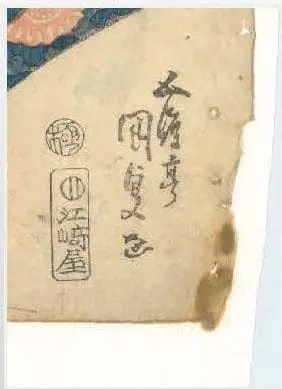 五渡亭
国貞画
極
江崎屋